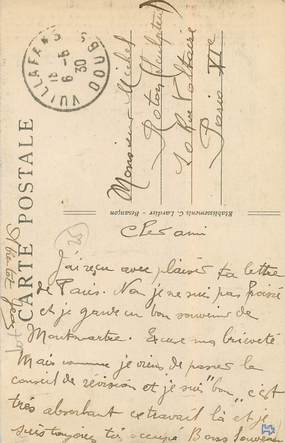 CARTE POSTALE
VUILLAFANS DOUBS
6-6
30
Monsieur Michel
Rotou (Sculpteur)
20 Rue Voltaire
Paris XIe
Etablissements C. Lardier - Besançon
25
Cher ami
J'ai reçu avec plaisir ta lettre
de Paris. Non je ne suis pas
et je garde un bon souvenir de
Montmartre. Excuse ma brièveté
Mais comme je viens de passer le
conseil de révision et je suis "bon" c'est
très absorbant ce travail là et je
suis toujours très occupé Bons souvenirs